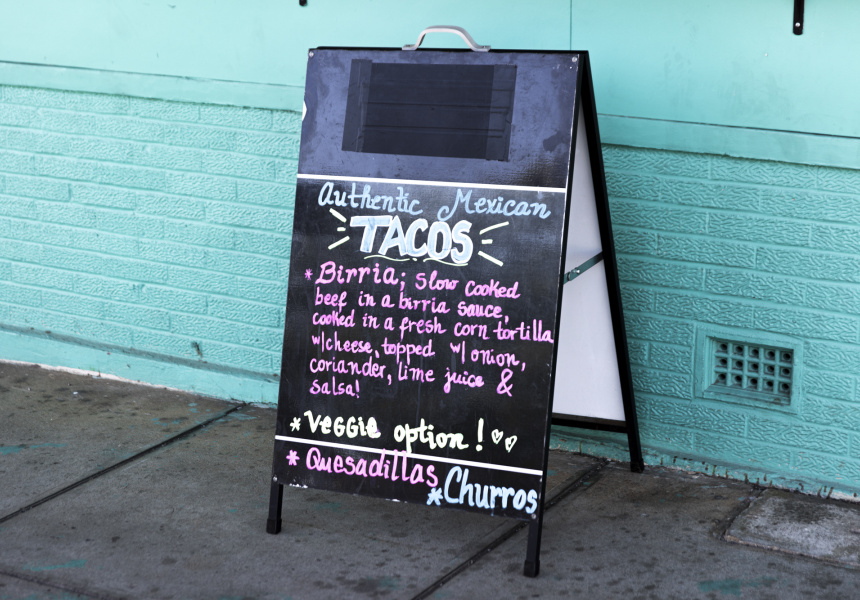 Authentic Mexican
TACOS
*Birria; slow cooked
beef in a birria sauce,
cooked in a fresh corn tortilla
w/cheese, topped w/ onion,
coriander, lime juice &
salsa!
*Veggie option!
*Quesadillas
*Churros